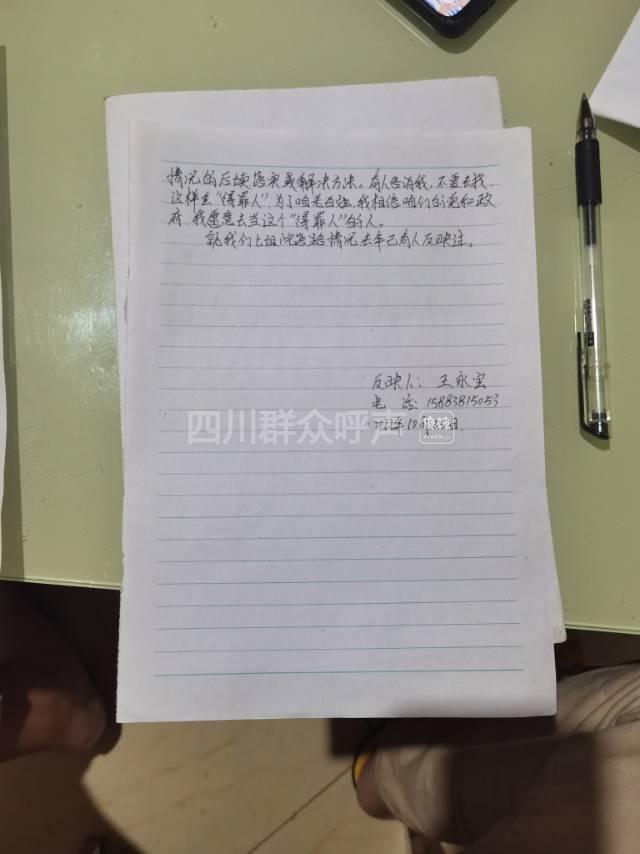 情况的后续落实或解决方法。有人告诉我，不要去找，
这样会“得罪人”，为了咱老百姓，我相信咱们的党和政
府，我愿意去当这个“得罪人”的人。
就我们七组院落路情况去年已有人反映过。
反映人：王永宝
电话：15883815053
2022年10月
四川群众呼声